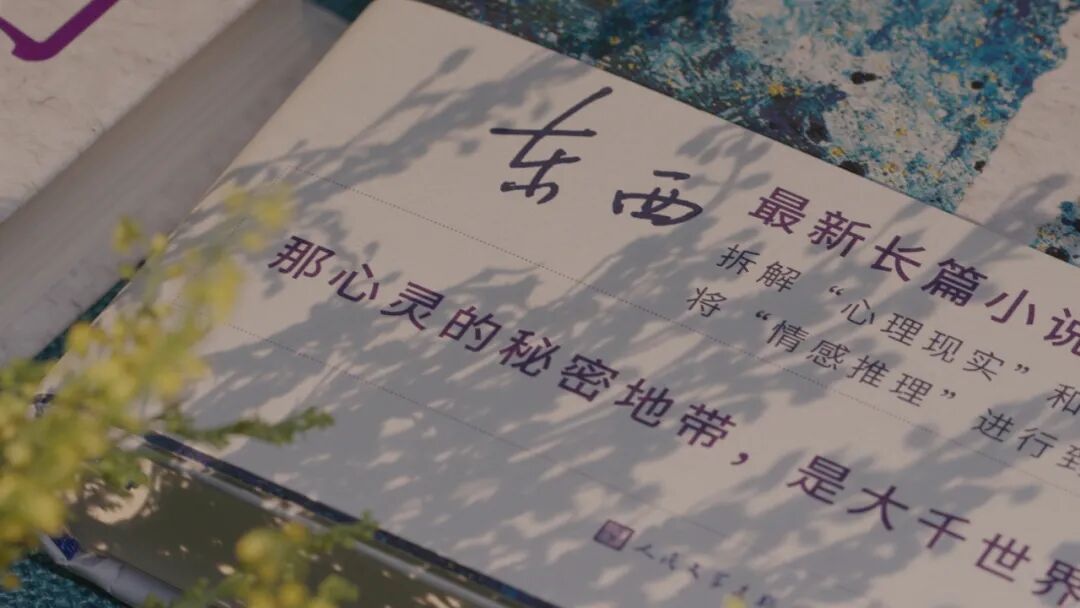 东西
最新长篇小说
拆解“心理现实”和
将“情感推理”进行到
那心灵的秘密地带，是大千世界
人民文学出版